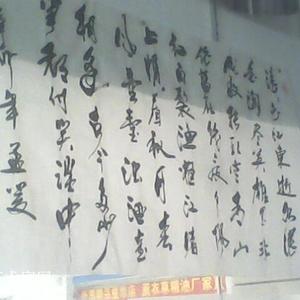 滚滚长江東逝水浪
花淘尽英雄是非
成败转头空青山
依旧在几度夕陽
红白髮渔樵江渚
上惯看秋月春
风一壶浊酒喜
相逢古今多少
事都付笑谈中
辛卯年孟夏